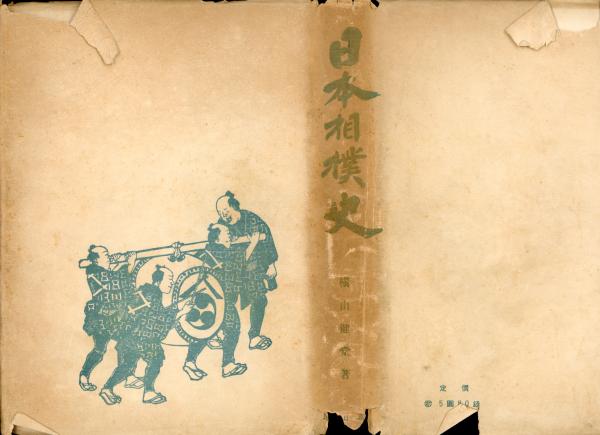 日本相撲史
横山健堂著
定價
㊞ 5圓80錢